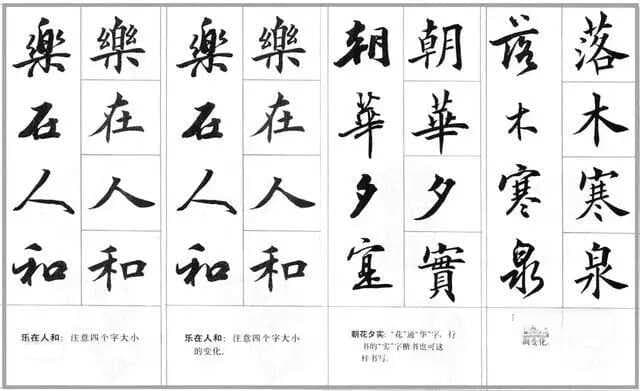 樂在人和
樂在人和
乐在人和：注意四个字大小
樂在人和
樂在人和
乐在人和：注意四个字大小
的变化。
朝華夕寔
朝華夕實
朝花夕实：“花”通“华”字，行
书的“实”字楷书也可这
样书写。
落木寒泉
落木寒泉
变化。